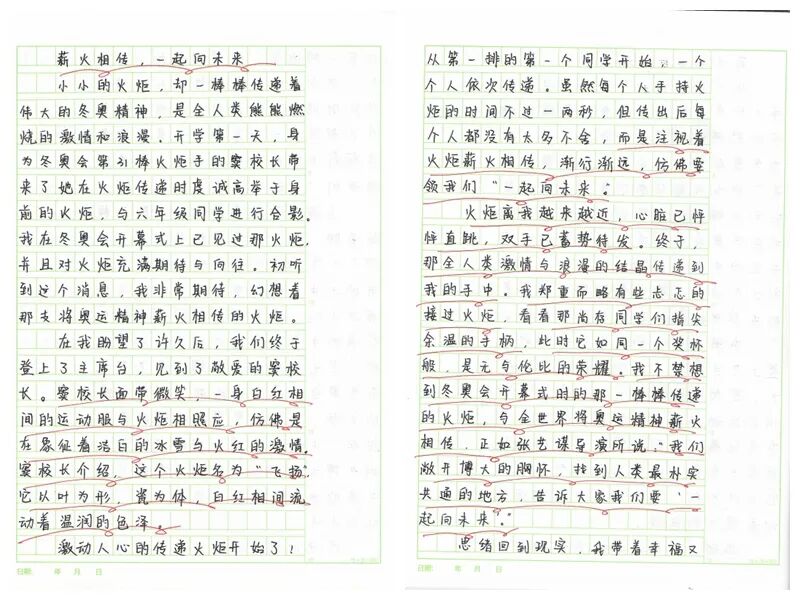 薪火相传，一起向未来
小小的火炬，却一棒棒传递着
伟大的冬奥精神，是全人类熊熊燃
烧的激情和浪漫。开学第一天，身
为冬奥会第31棒火炬手的窦校长带
来了她在火炬传递时虔诚高举于身
前的火炬，与六年级同学进行合影。
我在冬奥会开幕式上已见过那火炬，
并且对火炬充满期待与向往。初听
到这个消息，我非常期待，幻想着
那支将奥运精神薪火相传的火炬。
在我盼望了许久后，我们终于
登上了主席台，见到了敬爱的窦校
长。窦校长面带微笑，一身白红相
间的运动服与火炬相照应，仿佛是
在象征着洁白的冰雪与火红的激情。
窦校长介绍，这个火炬名为“飞扬”，
它以叶为形，瓷为体，白红相间流
动着温润的色泽。
激动人心的传递火炬开始了！
日期： 年 月 日
从第一排的第一个同学开始，一个
个人依次传递。虽然每个人手持火
炬的时间不过一两秒，但传出后每
个人都没有太多不舍，而是注视着
火炬薪火相传，渐行渐远，仿佛要
领我们“一起向未来”。
火炬离我越来越近，心脏已怦
怦直跳，双手已蓄势待发。终于，
那全人类激情与浪漫的结晶传递到
我的手中。我郑重而略有些忐忑的
接过火炬，看着那尚存同学们指尖
余温的手柄，此时它如同一个奖杯
般，是无与伦比的荣耀。我不禁想
到冬奥会开幕式时的那一棒棒传递
的火炬，与全世界将奥运精神薪火
相传，正如张艺谋导演所说：“我们
敞开博大的胸怀，找到人类最朴实
共通的地方，告诉大家我们要‘一
起向未来’。”
思绪回到现实，我带着幸福又
日期： 年 月 日